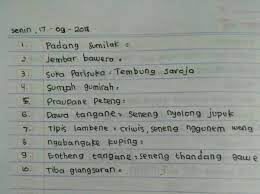 senin, 17 - 09 - 2018
1. Padang sumilak :
2. Jembar bawera :
3. Suka Parisuka : Tembung saroja
4. Sumyah gumirah :
5. Praupane Peteng :
6. Dawa tangane : Seneng nyolong jupuk
7. Tipis lambene : criwis, seneng nggunem wong
8. ngabangake kuping :
9. Entheng tangane : seneng tandang gawe
10. Tiba glangsaran :